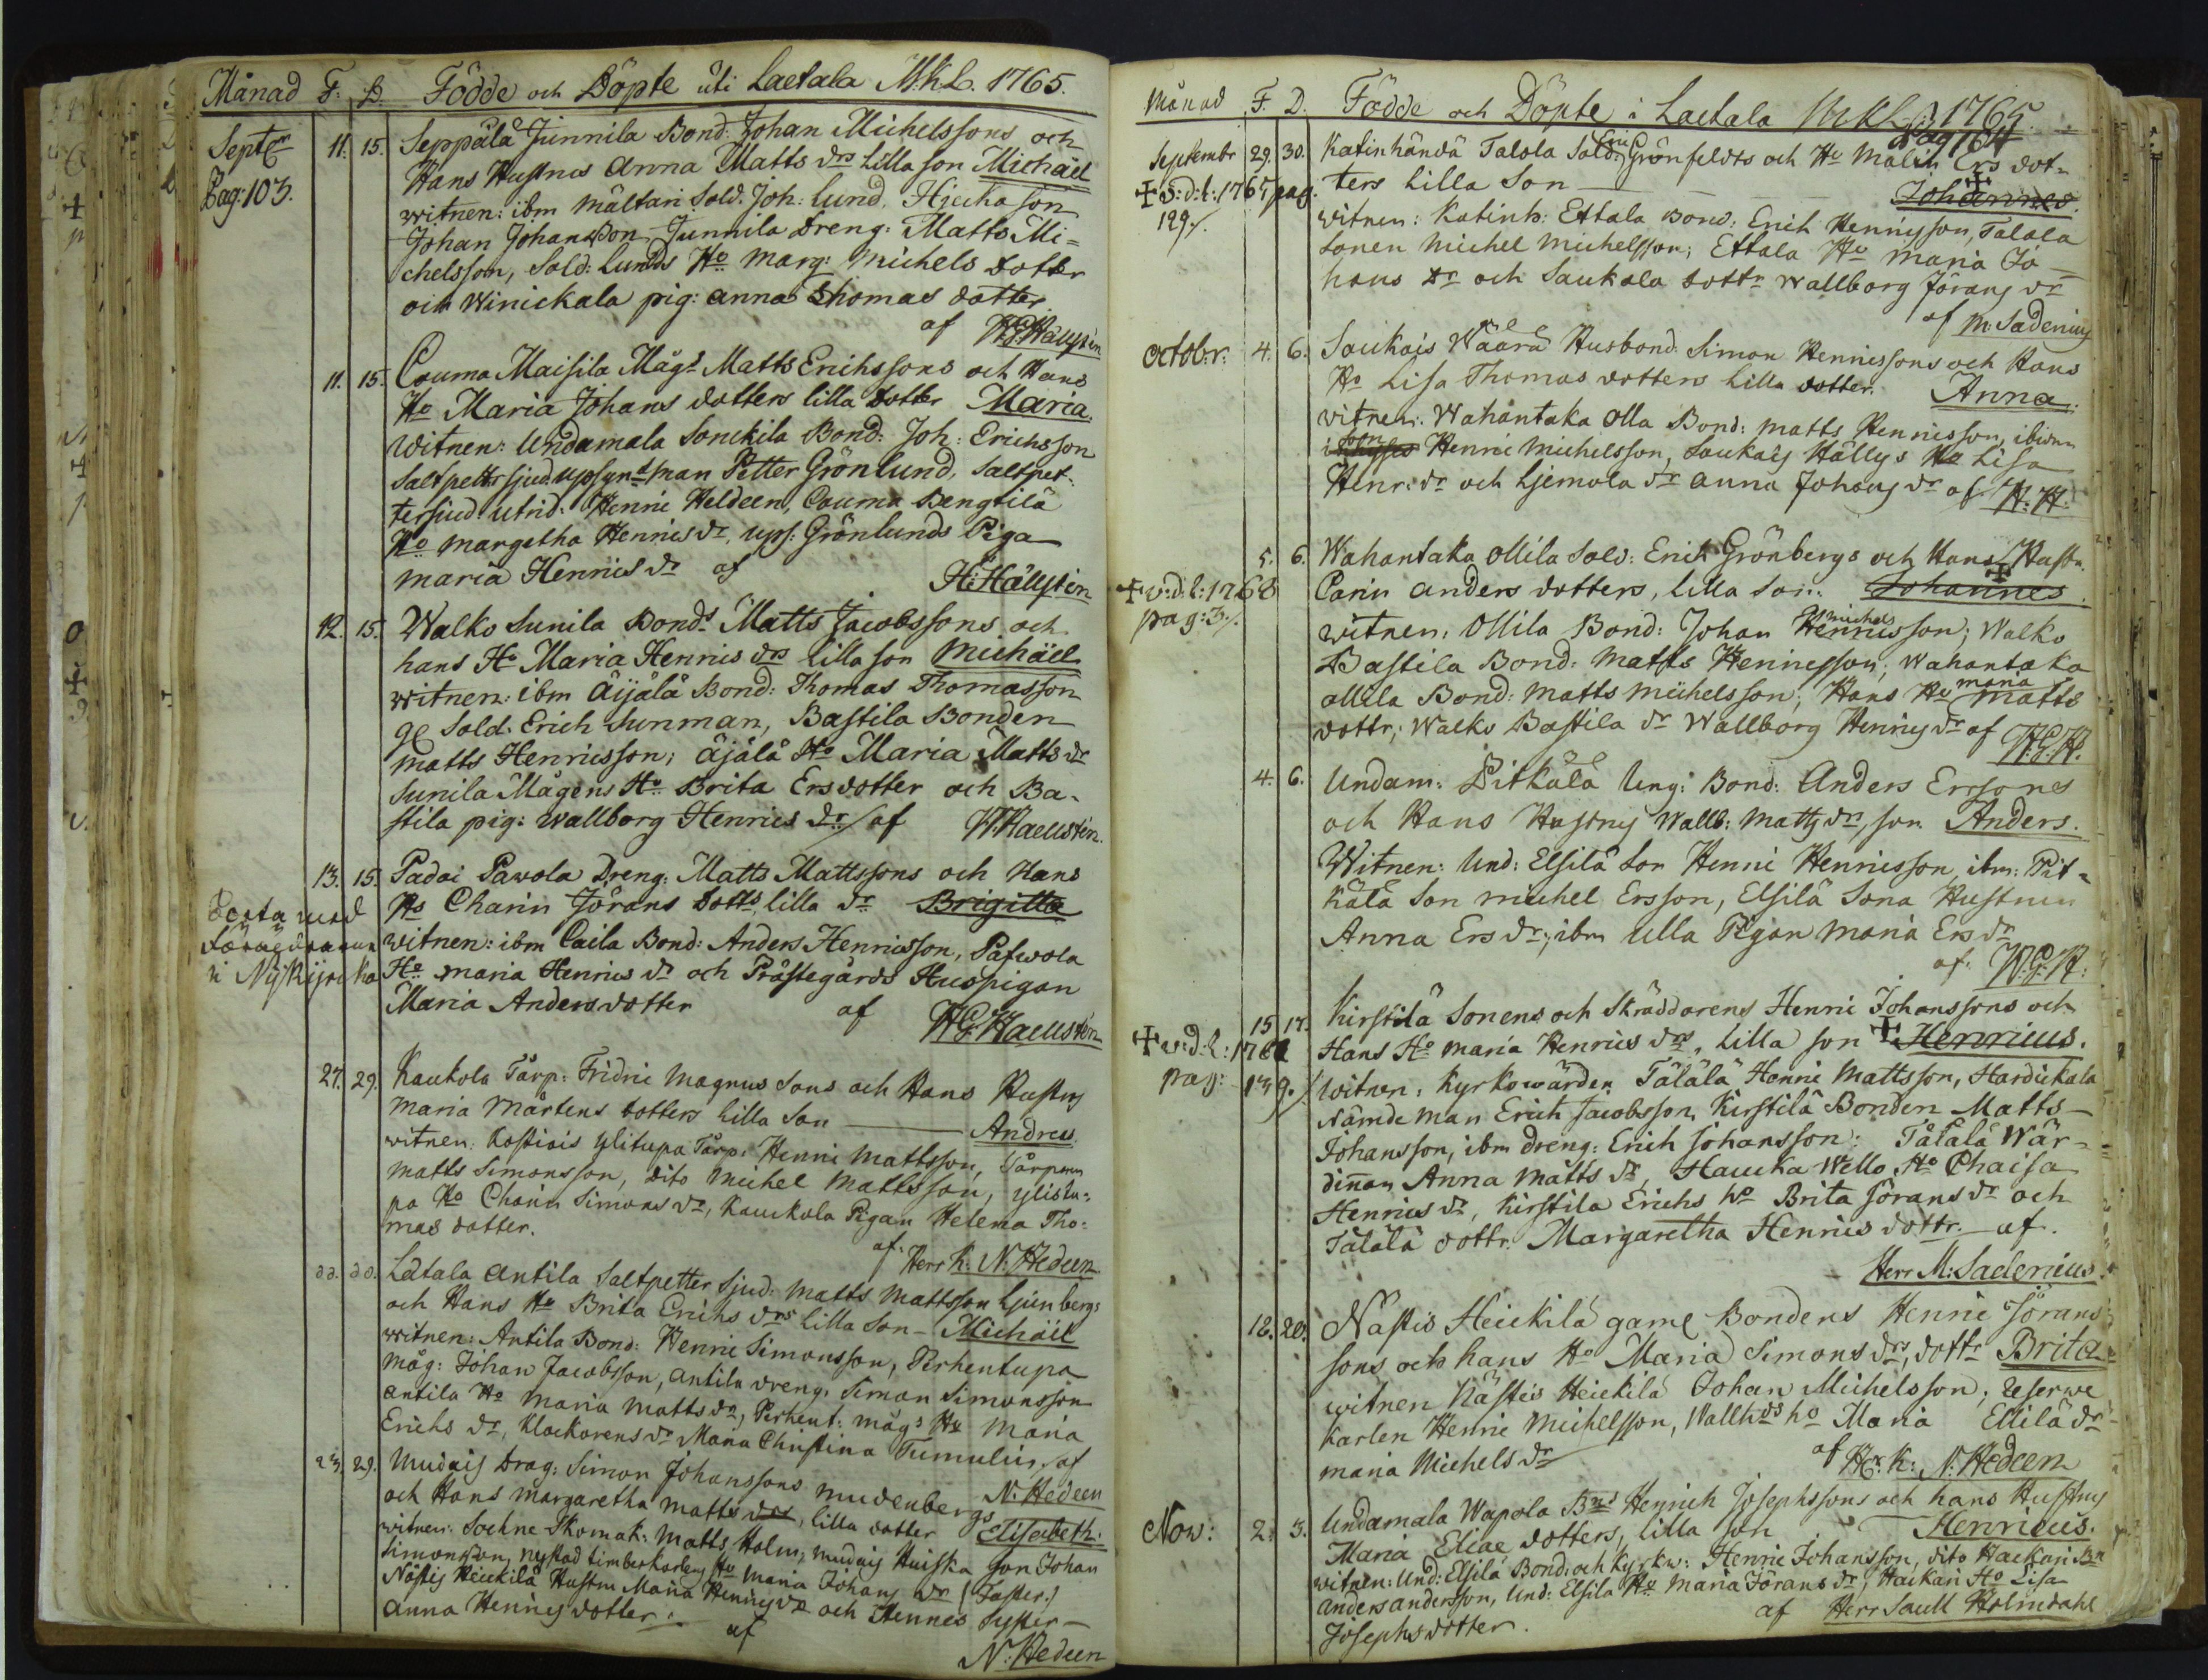 Månad F. D. Födde och Döpte uti Laetala M.K.L. 1765.
Septr 11. 15. Seppälä Junnila Bond. Johan Michelssons och
Pag: 103. Hans Hustrus Anna Matts drs Lilla son Michäel
witnen: ibm Mältäri Sold. Joh: Lund, son
Johan Johansson Junnila Dreng: Matts Mi=
chelsson, Sold: Lunds Ho Marg: Michels dotter
och Winickala pig: Anna Thomas dotter
af
11. 15. Couma Maisila Mågs Matts Erichssons och Hans
Ho Maria Johans dotters lilla dotter Maria.
Witnen: Undamala Sonckila Bond: Joh: Erichsson
Saltpettersjud. man Petter Grönlund, Saltpet-
tersjud. Henric Heldeen, Couma Bengtilä
Ho Margetha Henrics dr, Grönlunds Piga
Maria Henrics dr af H: Hällsten
12. 15. Walko Sunila Bonds Matts Jacobssons och
hans Ho Maria Henrics drs lilla son Michäel
witnen: ibm Äijälä Bond: Thomas Thomasson
Sold. Erich Sunman, Bastila Bonden
Matts Henricsson; Äjälä Ho Maria Matts dr
Sunila Mågens Ho Brita Ersdotter och Ba-
stila pig: Wallborg Henrics dr af
13. 15. Padoi Pawola Dreng: Matts Mattssons och Hans
Ho Charin Jörans dotts lilla dr Brigitta
witnen: ibm Caila Bond: Anders Henricsson, Pafwola
i Nykyrcka Ho Maria Henrics dr och Prästegårds Huspigan
Maria Andersdotter af
27. 29. Kaukola Tårp: Fridric Magnus Sons och Hans Hustrus
Maria Mårtens dotters lilla Son Andreas
witnen: Kostiois Ylitupa Tårp: Henric Mattsson,
Matts Simonsson, dito Michel Mattsson, ylistu-
pa Ho Charin Simons dr, Kauckola Pigan Helena Tho-
mas dotter.
af. Herr K. N. Hedeen
Latala Antila Saltpetter Sjud: Matts Mattsson Ljunbergs
och Hans Ho Brita Erichs drs lilla Son - Michäel
witnen: Antila Bond: Henric Simonsson, Perhentupa
måg: Johan Jacobsson, Antila dreng: Simon Simonsson
Antila Ho Maria Matts dr, Perhent: mågs Ho Maria
Erichs dr, Klockarens dr Maria Christina af
N. Hedeen
29. Mudais Drag: Simon Johanssons Mudenbergs
och Hans Margaretha Matts drs, lilla dotter Elisabeth.
witnen: Sockne Skomak: Matts Holm, Mudais Huiska son Johan
Simonsson, Nystad timberkarlens Ho Maria Johans dr (Faster.)
Nästis Heickilä Hustru Maria Henrics dr och Hennes Syster
Anna Henrics dotter: af
N. Hedeen
Månad F. D. Födde och Döpte i Laetala M.K.L. 1765.
Pag 104
Septembr 29. 30. Katinhändä Talola Sold: Eric Grönfeldts och Ho Malin Ers dot-
✝ v: d: l: 1765 pag. ters Lilla Son Johannes.
129. witnen: Katinh: Ettala Bond: Erich Henricsson, Talola
Sonen Michel Michelsson; Ettala Ho Maria Jo-
hans dr och Saukola dottr Wallborg Jörans dr
af M: Sadenius
Octobr: 4. 6. Soukais Wäärä Husbond Simon Henricssons och Hans
Ho Lisa Thomas dotters Lilla dotter. Anna.
witnen: Wahantaka Olla Bond: Matts Henricsson, ibidem
son Henric Michelsson, Soukais Hällys Ho Lisa
Henr: dr och Ljemola dr Anna Johans dr af H: H.
5. 6. Wahantaka Ollila Sold: Erich Grönbergs och Hans Hustru
✝ v: d: l: 1768 Carin Anders dotters, lilla Son: Johannes
pag: 3. witnen: Ollila Bond: Johan Michels Henricsson; Walko
Bastila Bond: Matts Henricsson; Wahantaka
Ollila Bond: Matts Michelsson; Hans Ho Maria Matts
dottr; Walko Bastila dr Wallborg Henrics dr af
4. 6. Undam: Pitkälä Ung: Bond: Anders Erssons
och Hans Hustrus Wallb: Matts drs, son Anders.
Witnen: Und: Elsilä Son Henric Henricsson, ibm: Pit-
kälä Son Michel Ersson, Elsilä Sona Hustrun
Anna Ers dr; ibm Ulla Pigan Maria Ers dr
af:
15 17. Kirstilä Sonens och Skräddarens Henric Johanssons och
✝ v: d: l: Hans Ho Maria Henrics drs, Lilla son ✝ Henricus.
pag: 139. witnen: Kyrkowärden Tälälä Henric Mattsson, Hardickala
Nämdeman Erich Jacobsson, Kirstilä Bonden Matts
Johansson, ibm dreng: Erich Johansson; Tälälä Wär-
dinnan Anna Matts dr, Haucka Wello Ho Chaisa
Henrics dr, Kirstila Erichs Ho Brita Jörans dr och
Tälälä dottr. Margaretha Henrics dottr. af.
Herr M: Sadenius.
18. 20. Nästis Heickilä gaml Bondens Henric Jörans
sons och hans Ho Maria Simons drs, dottr Brita
witnen Nästis Heickilä Johan Michelsson, Reserwe
Karlen Henric Michelsson, Ho Maria Elilä dr
Maria Michels dr
af Hr: K: N: Hedeen
Nov: 2. 3. Undamala Wapola Bds Henrich Josephssons och hans Hustrus
Maria Eliae dotters, lilla son Henricus.
witnen: Und: Elsilä Bond: och Kyrkw: Henric Johansson, dito Haukari Bn
Anders Andersson, Und: Elsila Ho Maria Jörans dr, Haukari Ho Lisa
Josephsdotter. af Herr Saull Holmdahl